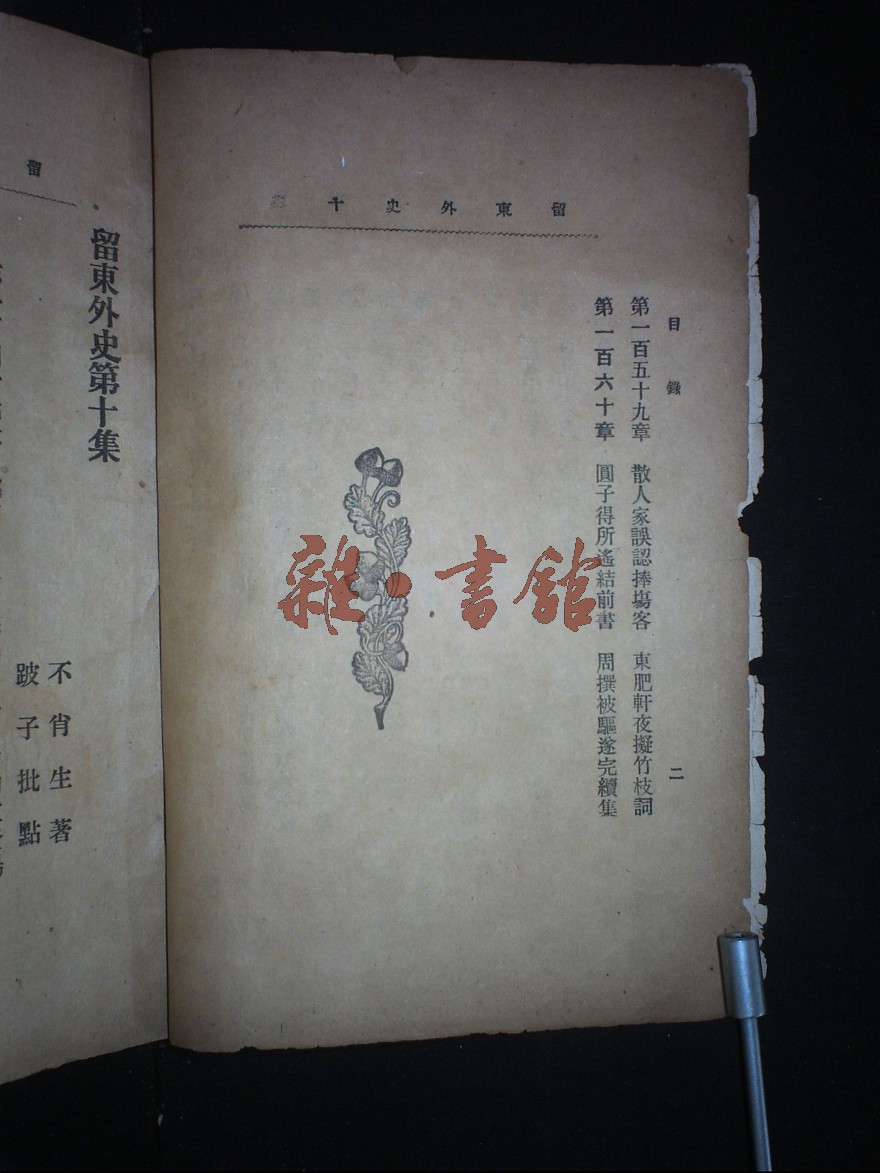 留東外史十集
目錄
二
第一百五十九章 散人家誤認捧場客 東肥軒夜擬竹枝詞
第一百六十章 圓子得所遙結前書 周撰被驅遂完續集
雜·書館
留
留東外史第十集
不肖生著
跛子批點